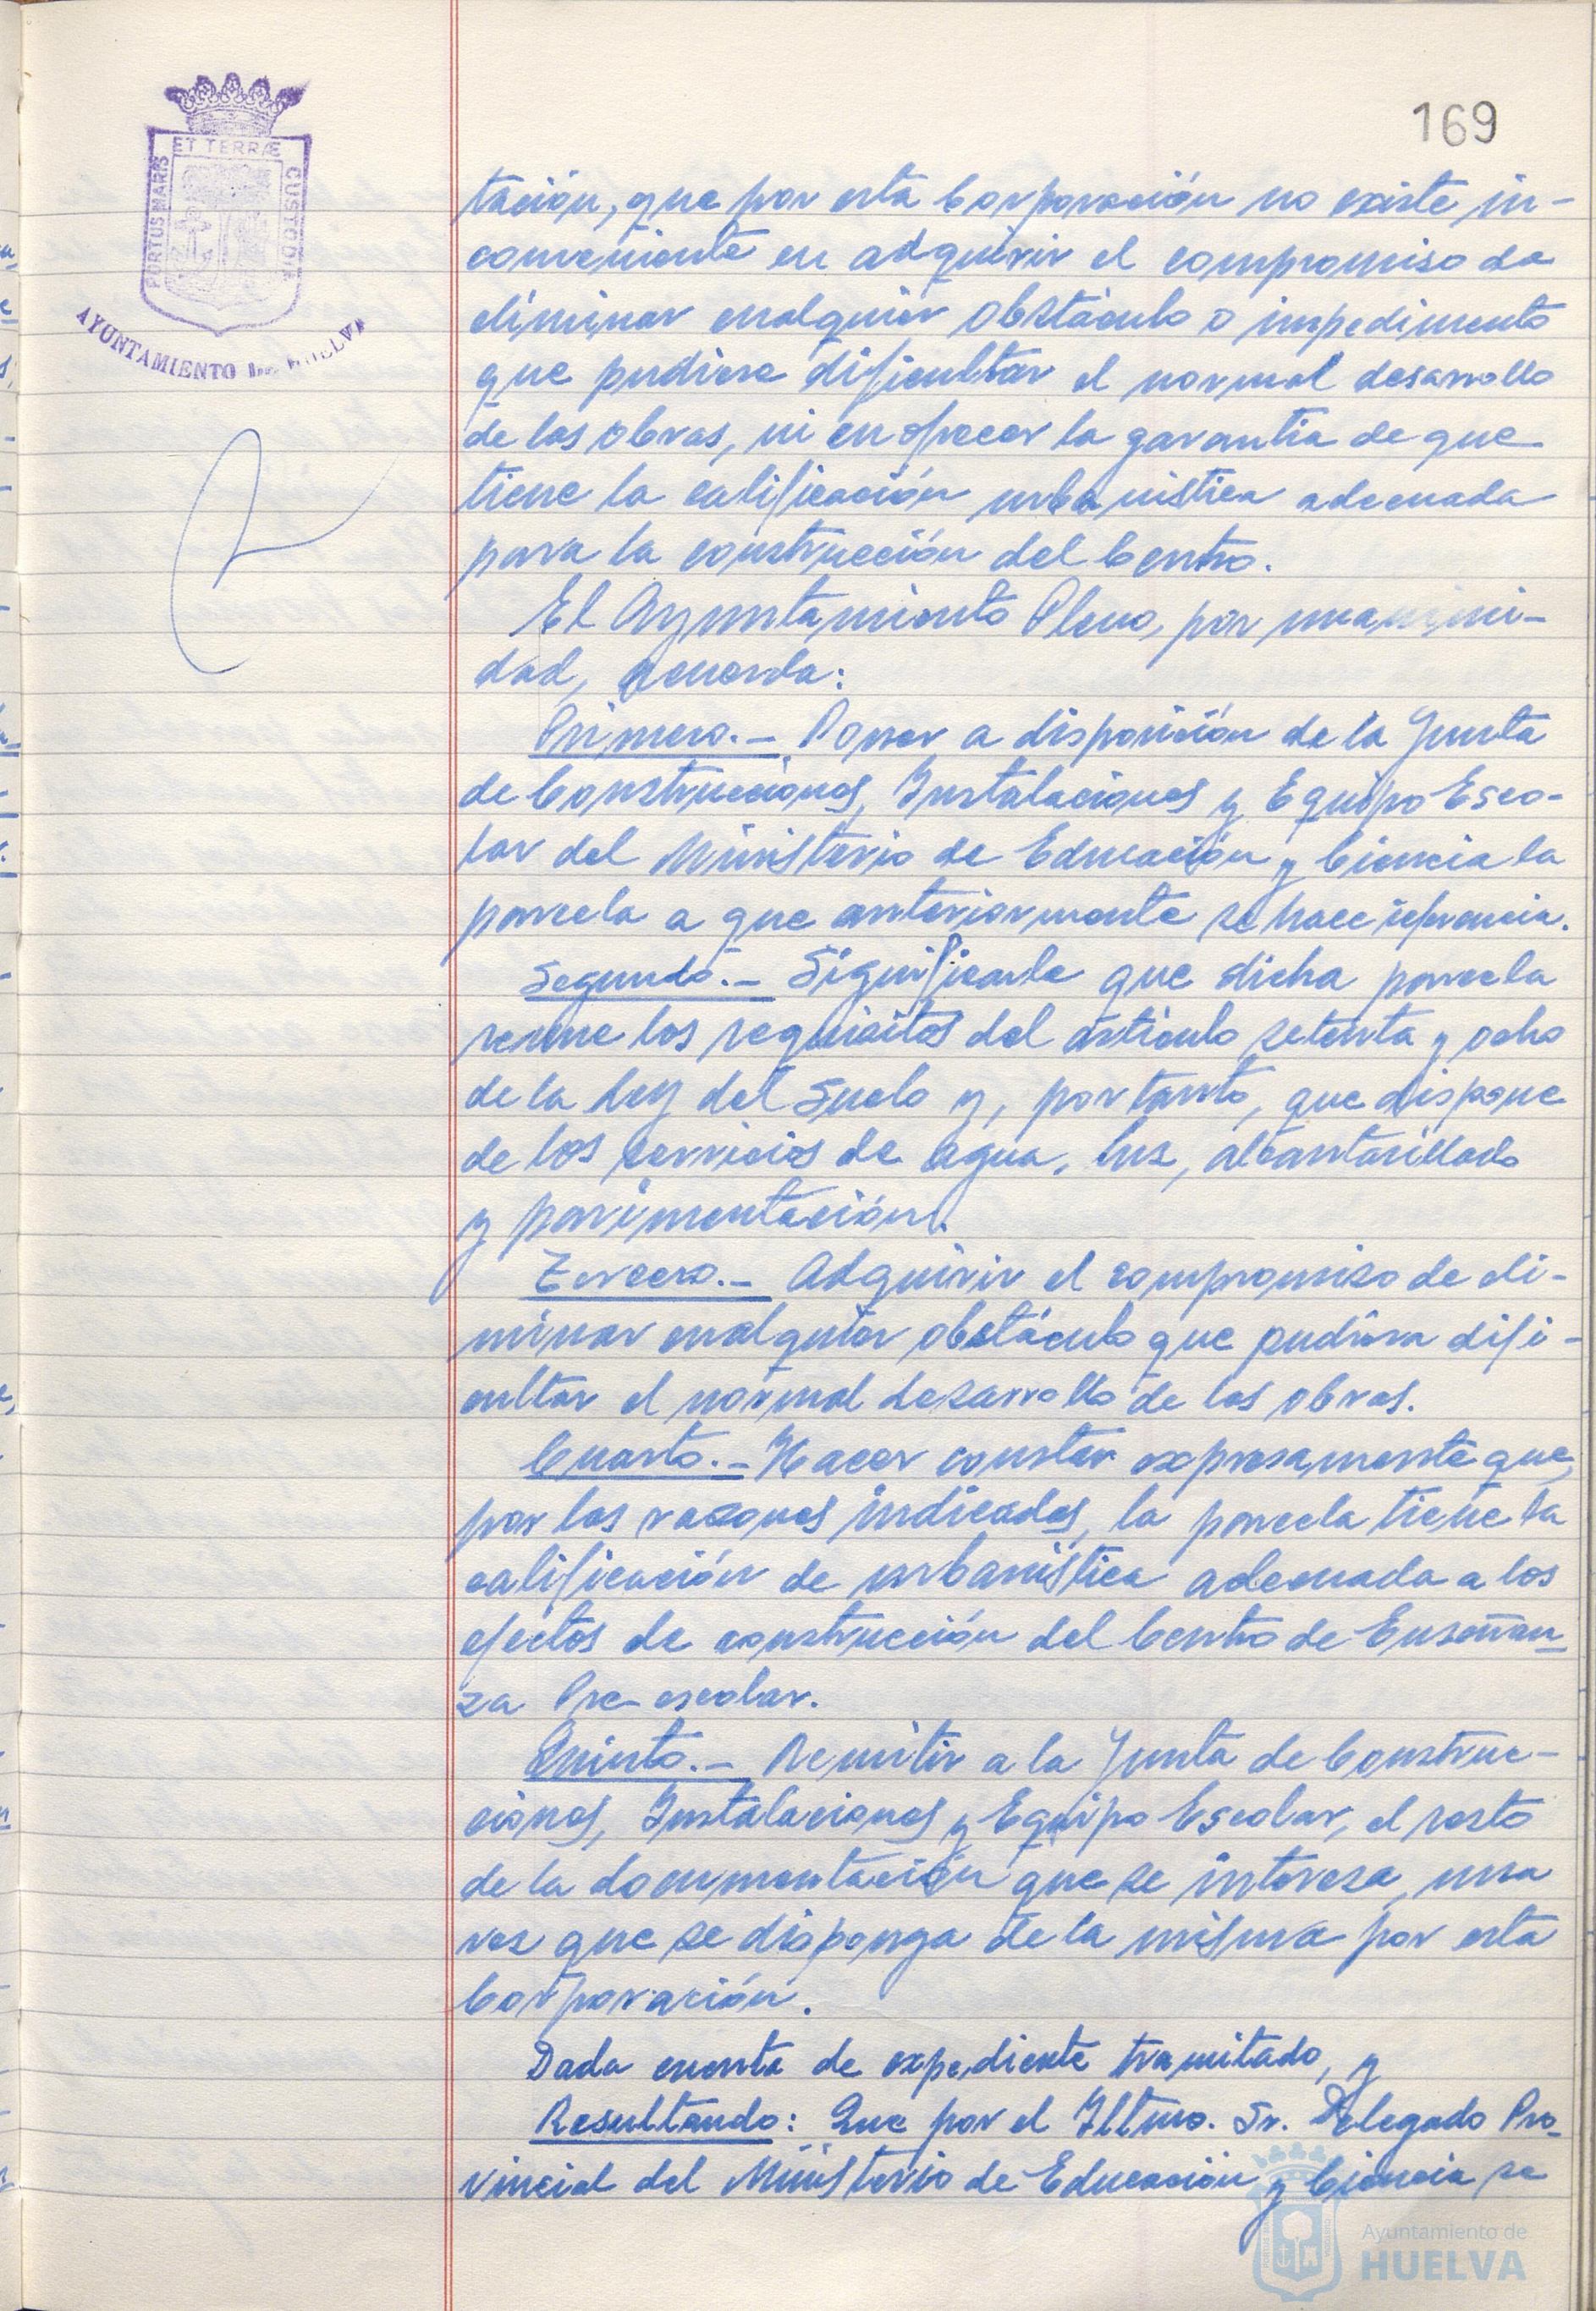 169
ET TERRÆ
PORTUS MARIS
CUSTODIA
AYUNTAMIENTO DE HUELVA
tación, que por esta Corporación no existe in-
conveniente en adquirir el compromiso de
eliminar cualquier obstáculo o impedimento
que pudiese dificultar el normal desarrollo
de las obras, ni en ofrecer la garantía de que
tiene la calificación urbanística adecuada
para la construcción del Centro.
El Ayuntamiento Pleno, por unanimi-
dad, acuerda:
Primero.- Poner a disposición de la Junta
de Construcciones, Instalaciones y Equipo Esco-
lar del Ministerio de Educación y Ciencia la
parcela a que anteriormente se hace referencia.
Segundo.- Significarle que dicha parcela
reune los requisitos del artículo setenta y ocho
de la Ley del Suelo y, por tanto, que dispone
de los servicios de agua, luz, alcantarillado
y pavimentación.
Tercero.- Adquirir el compromiso de eli-
minar cualquier obstáculo que pudiera difi-
cultar el normal desarrollo de las obras.
Cuarto.- Hacer constar expresamente que,
por las razones indicadas, la parcela tiene la
calificación de urbanística adecuada a los
efectos de construcción del Centro de Enseñan-
za Pre-escolar.
Quinto.- Remitir a la Junta de Construc-
ciones, Instalaciones y Equipo Escolar, el resto
de la documentación que se interesa, una
vez que se disponga de la misma por esta
Corporación.
Dada cuenta de expediente tramitado, y
Resultando: Que por el Iltmo. Sr. Delegado Pro-
vincial del Ministerio de Educación y Ciencia se
Ayuntamiento de
HUELVA